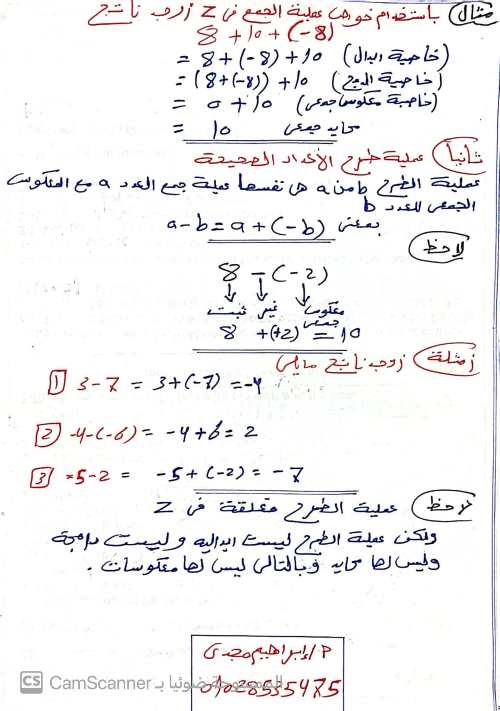 مثال باستخدام خواص عملية الجمع فى Z أوجد ناتج
8 + 10 + (-8)
= 8 + (-8) + 10 (خاصية ابدال)
= (8 + (-8)) + 10 (خاصية الدمج)
= 0 + 10 (خاصية معكوس جمعى)
= 10 محايد جمعى
ثانيا عملية طرح الأعداد الصحيحة
عملية الطرح b من a هى نفسها عملية جمع العدد a مع المعكوس
الجمعى للعدد b
بمعنى a - b = a + (-b)
لاحظ
8 - (-2)
ثبت غير معكوس
جمعى
8 + (+2) = 10
أمثلة أوجد ناتج ما يلى
1 3 - 7 = 3 + (-7) = -4
2 -4 - (-6) = -4 + 6 = 2
3 -5 - 2 = -5 + (-2) = -7
لاحظ عملية الطرح مغلقة فى Z
ولكن عملية الطرح ليست ابداليه وليست دامجة
وليس لها محايد وبالتالى ليس لها معكوسات .
أ/ إبراهيم مجدى
01028535475
CS CamScanner الممسوحة ضوئيا بـ